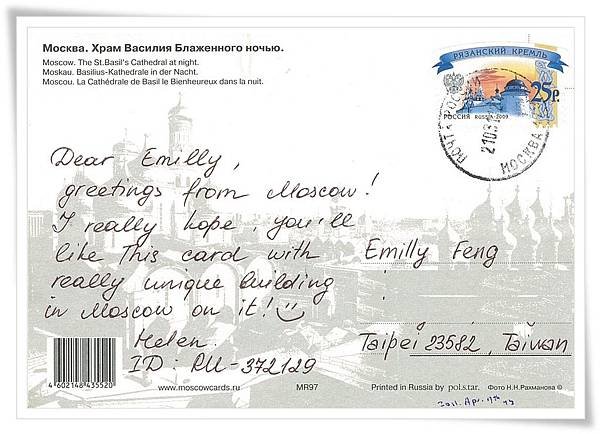 Москва. Храм Василия Блаженного ночью.
Moscow. The St.Basil's Cathedral at night.
Moskau. Basilius-Kathedrale in der Nacht.
Moscou. La Cathédrale de Basil le Bienheureux dans la nuit.
РЯЗАНСКИЙ КРЕМЛЬ
25р.
РОССИЯ RUSSIA·2009
ПОЧТА РОС
МОСКВА
Dear Emilly,
greetings from Moscow!
I really hope, you'll
like This card with
really unique building
in Moscow on it!
Helen.
ID: RU-372129
Emilly Feng
Taipei 23582, Taiwan
4602148435520
www.moscowcards.ru
MR97
Printed in Russia by pol.star.
Фото Н.Н.Рахманова ©
2011. Apr. 19th